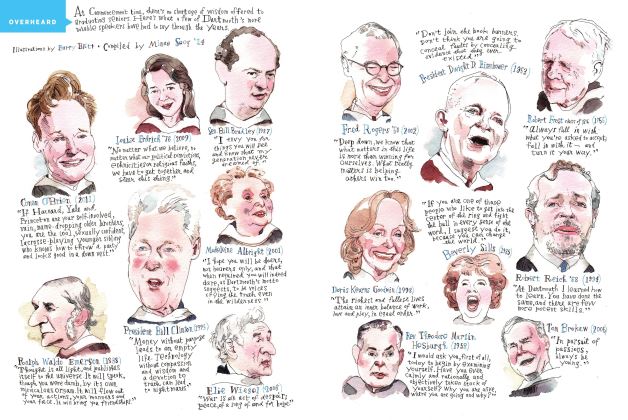 OVERHEARD
At Commencement time, there's no shortage of wisdom offered to
graduating seniors. Here's what a few of Dartmouth's more
notable speakers have had to say through the years.
Illustrations by Barry Blitt • Compiled by
Conan O'Brien (2011)
"If Harvard, Yale and
Princeton are your self-involved,
vain, name-dropping older brothers,
you are the cool, sexually confident,
lacrosse-playing younger sibling
who knows how to throw a party
and looks good in a down vest."
Louise Erdrich '76 (2009)
"No matter what we believe, no
matter what our political convictions,
ethnicities or religious faiths,
we have to get together and
share this thing."
Sen. Bill Bradley
"I envy you for
things you will see
and know that my
generation never
dreamed of."
Madeleine Albright (2001)
"I hope you will be doers,
not hearers only, and that
when required, you will indeed
dare, as Dartmouth's motto
suggests, to be voices
crying the truth, even
in the wilderness."
Ralph Waldo Emerson (1838)
"Thought is all light, and publishes
itself to the universe. It will speak,
though you were dumb, by its own
miraculous organ. It will flow out of
your actions, your manners and
your face. It will bring you friendships."
President Bill Clinton (1995)
"Money without purpose
leads to an empty
life. Technology
without compassion
and wisdom and
a devotion to
truth can lead
to nightmares."
Elie Wiesel (2006)
"War is an act of despair,
peace, a song of and for hope."
Fred Rogers '50 (2002)
"Deep down, we know that
what matters in this life
is more than winning for
ourselves. What really
matters is helping
others win too."
"Don't join the book burners.
Don't think you are going to
conceal faults by concealing
evidence that they ever
existed."
President Dwight D. Eisenhower (1953)
Robert Frost (1955)
"Always fall in with
what you're asked to accept,
fall in with it — and
turn it your way."
Doris Kearns Goodwin (1998)
"The richest and fullest lives
attain an inner balance of work,
love and play, in equal order."
"If you are one of those
people who like to get into the
center of the ring and fight
the bull in every sense of the
word, I suggest you do it,
because you can change
the world."
Beverly Sills
Robert Reich '68 (1994)
"At Dartmouth I learned how
to learn. You have done the
same, and there are few
more potent skills."
Rev. Theodore Martin
Hesburgh (1958)
"I would ask you, first of all,
today to begin by examining
yourself. Have you ever
calmly and rationally and
objectively taken stock of
yourself? Why you are alive,
where you are going and why?"
Tom Brokaw (2005)
"In pursuit of
passions,
always be
young."